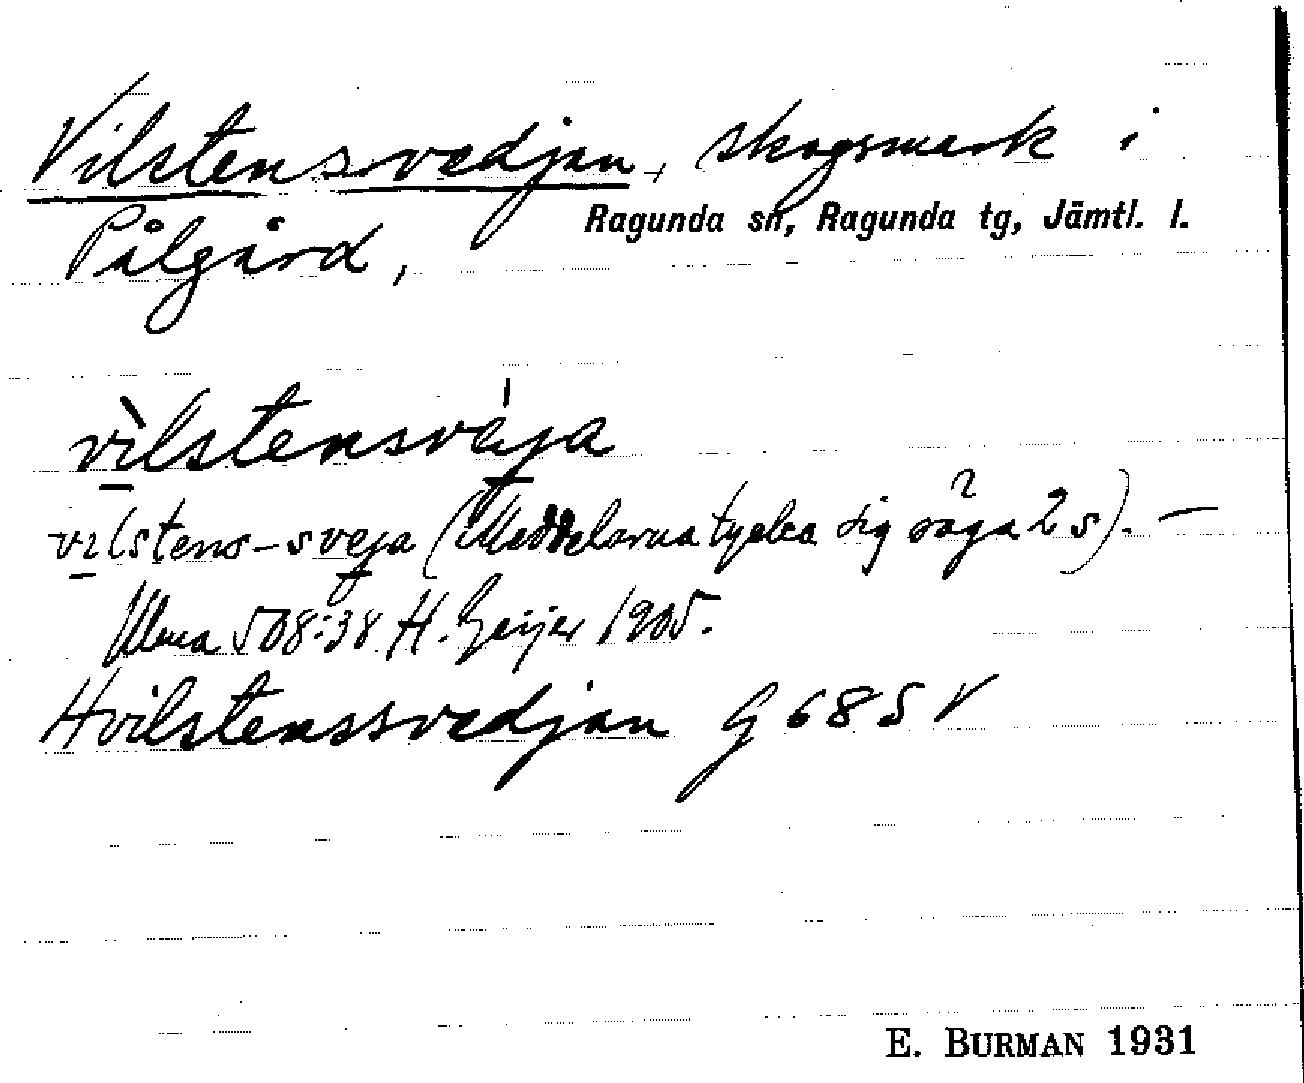 Vilstensvedjan, skogsmark i
Pålgård, Ragunda sn, Ragunda tg, Jämtl. l.
vìlstensvéja
vilstens-sveja (Meddelarna tycka sig säga 2 s). —
Ulma 508:38 H. Geijer 1905.
Hvilstenssvedjan G 685 V
E. BURMAN 1931